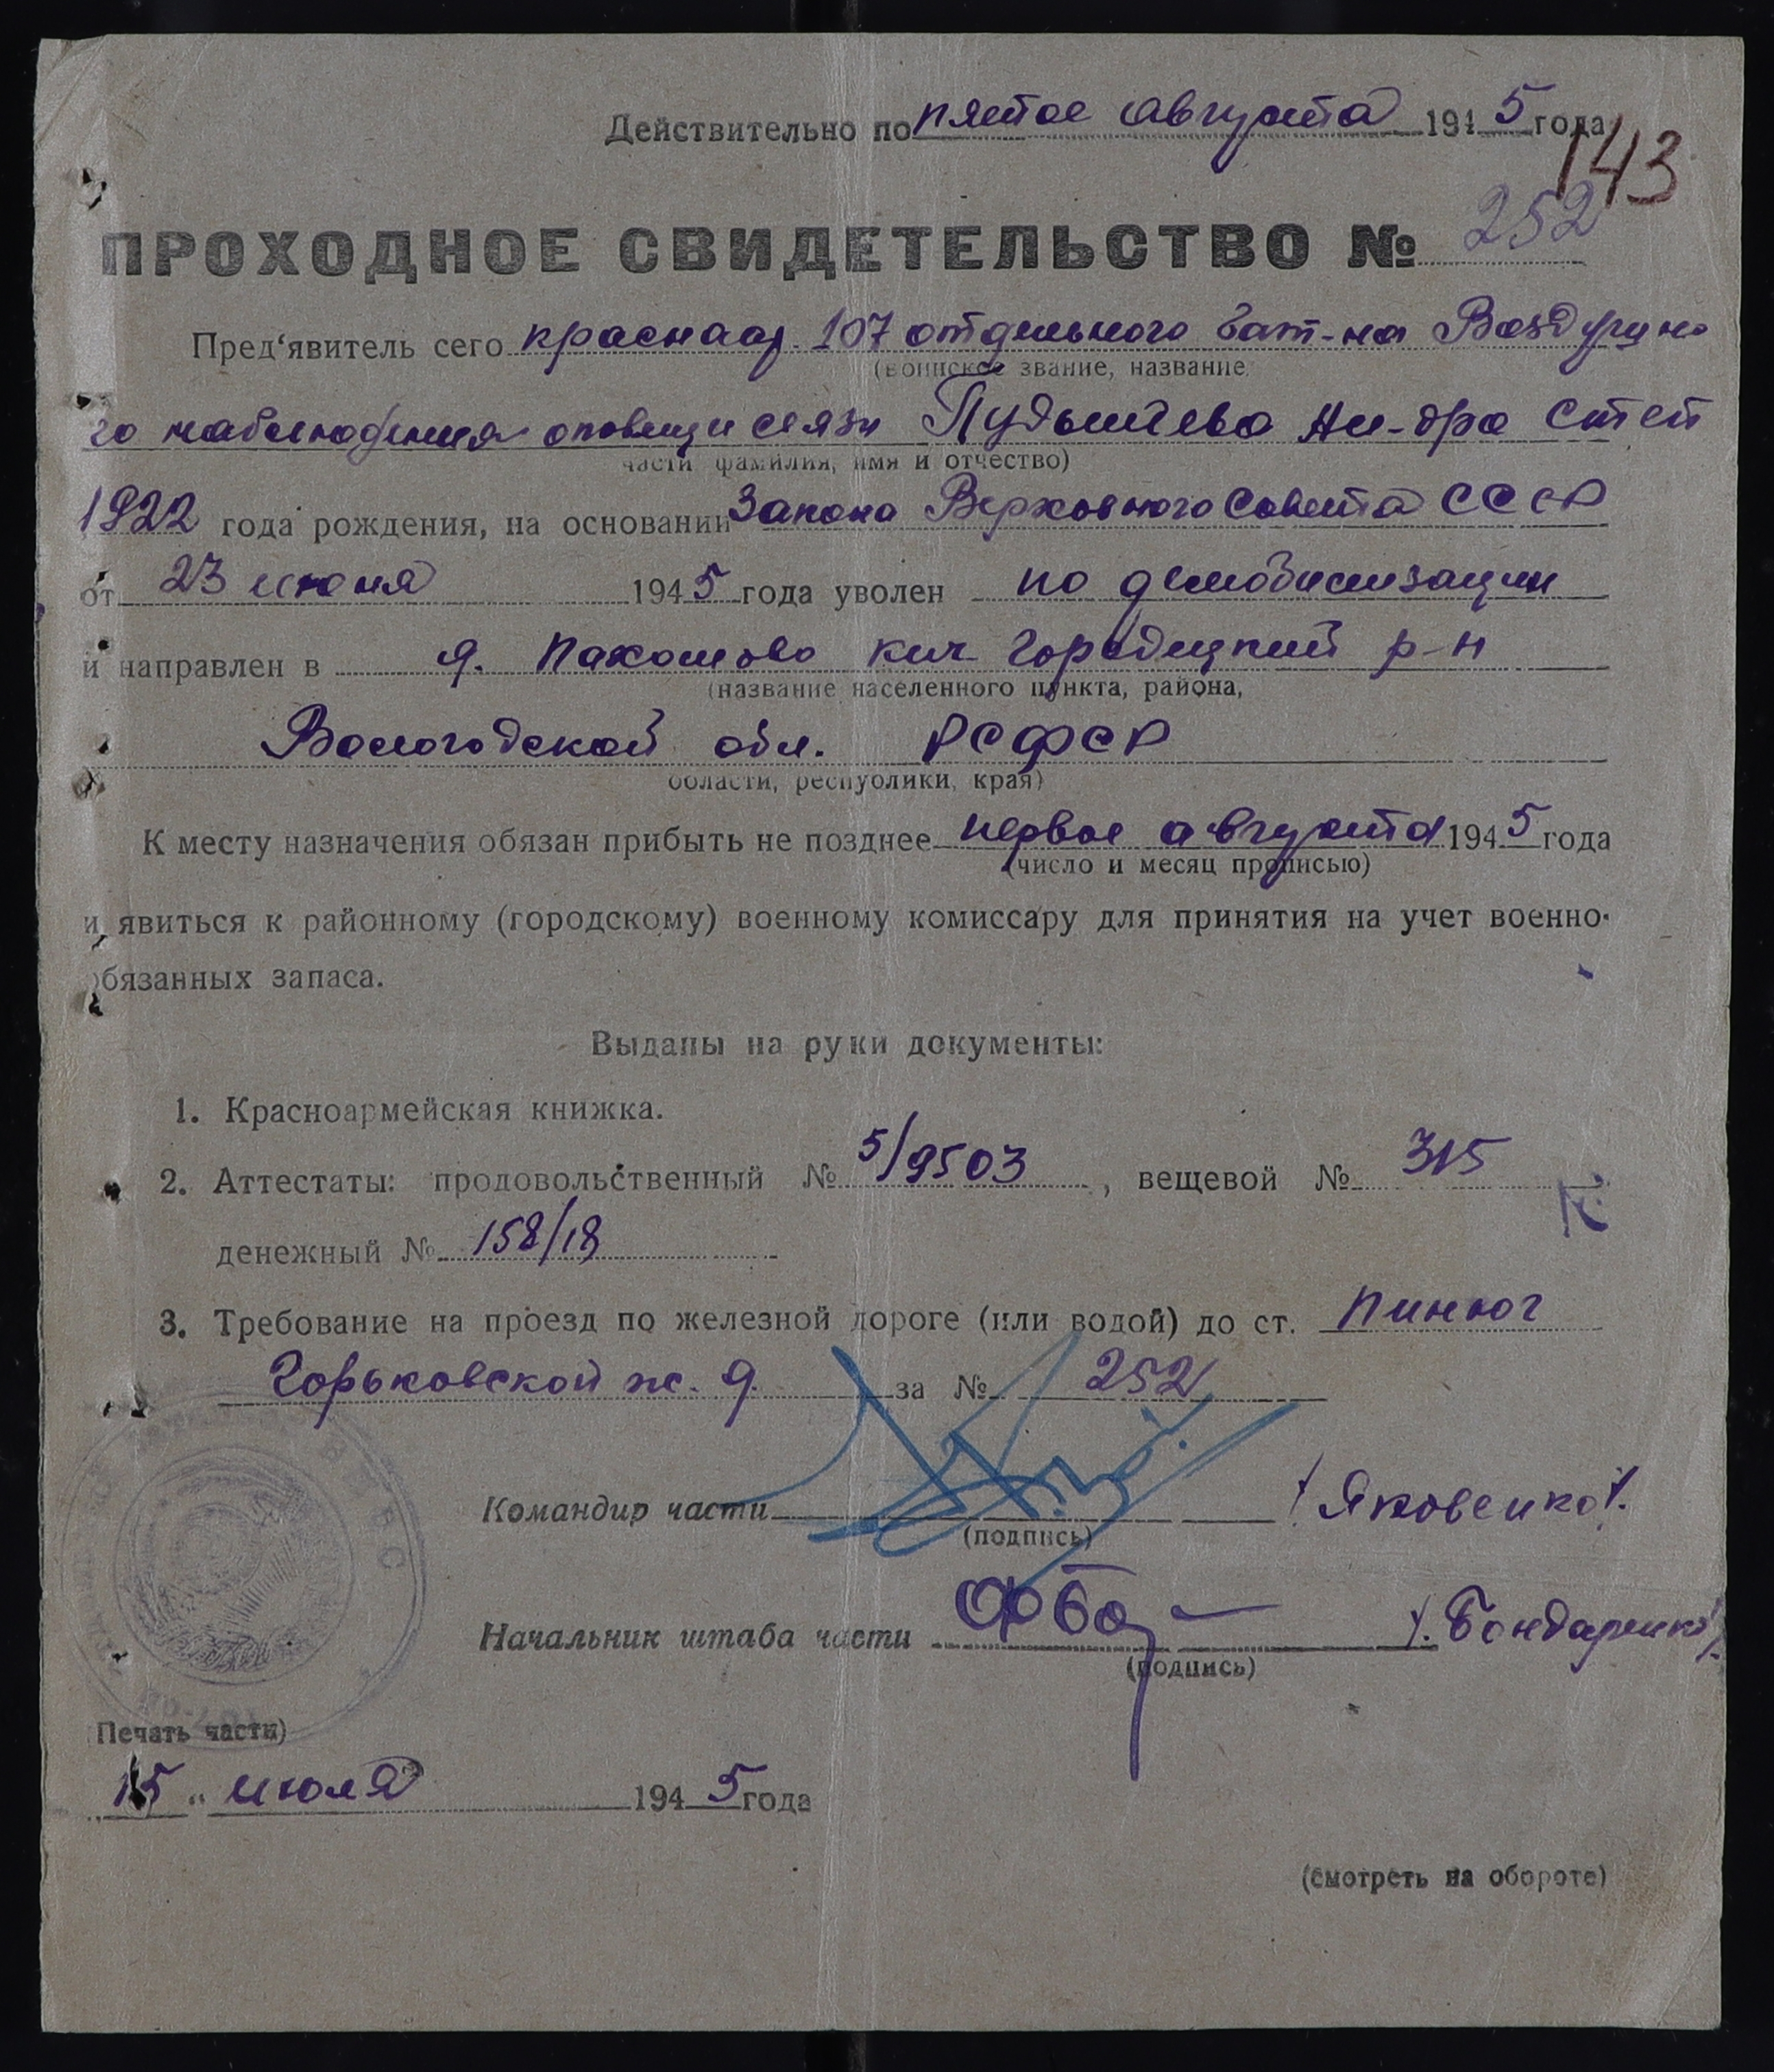 Действительно по пятое августа 1945 года
143
ПРОХОДНОЕ СВИДЕТЕЛЬСТВО № 252
Пред'явитель сего краснаар. 107 отдельного бат-на Воздушно
(воинское звание, название
го наблюдения оповещ и связи Пудышева Ал-дра Степ
части фамилия, имя и отчество)
1922 года рождения, на основании Закона Верховного Совета СССР
от 23 июня 1945 года уволен по демобилизации
и направлен в д. Пахомово Кич Городецкий р-н
(название населенного пункта, района,
Вологодской обл. РСФСР
области, республики, края)
К месту назначения обязан прибыть не позднее первое августа 1945 года
(число и месяц прописью)
и явиться к районному (городскому) военному комиссару для принятия на учет военно-
обязанных запаса.
Выданы на руки документы:
1. Красноармейская книжка.
2. Аттестаты: продовольственный № 5/9503, вещевой № 315
денежный № 158/18
3. Требование на проезд по железной дороге (или водой) до ст. Пинюг
Горьковской ж. д. за № 252
Командир части /Яковенко/.
(подпись)
Начальник штаба части /.Бондаренко/.
(подпись)
Печать части)
15 " июля 1945 года
(смотреть на обороте)